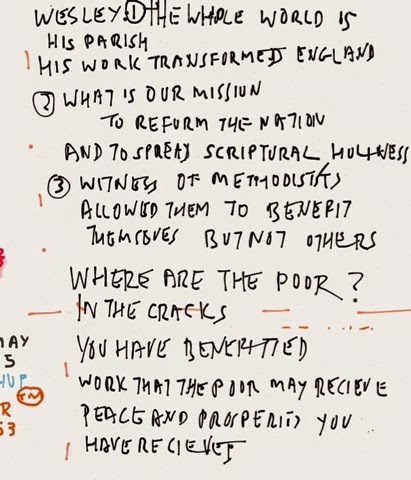 WESLEY ① THE WHOLE WORLD IS
HIS PARISH
HIS WORK TRANSFORMED ENGLAND
② WHAT IS OUR MISSION
TO REFORM THE NATION
AND TO SPREAD SCRIPTURAL HOLINESS
③ WITNESS OF METHODISTS
ALLOWED THEM TO BENEFIT
THEMSEVES BUT NOT OTHERS
WHERE ARE THE POOR ?
IN THE CRACKS
YOU HAVE BENEFITTED
WORK THAT THE POOR MAY RECIEVE
PEACE AND PROSPERITY YOU
HAVE RECIEVED
MAY
5
HUP
TN
R
53